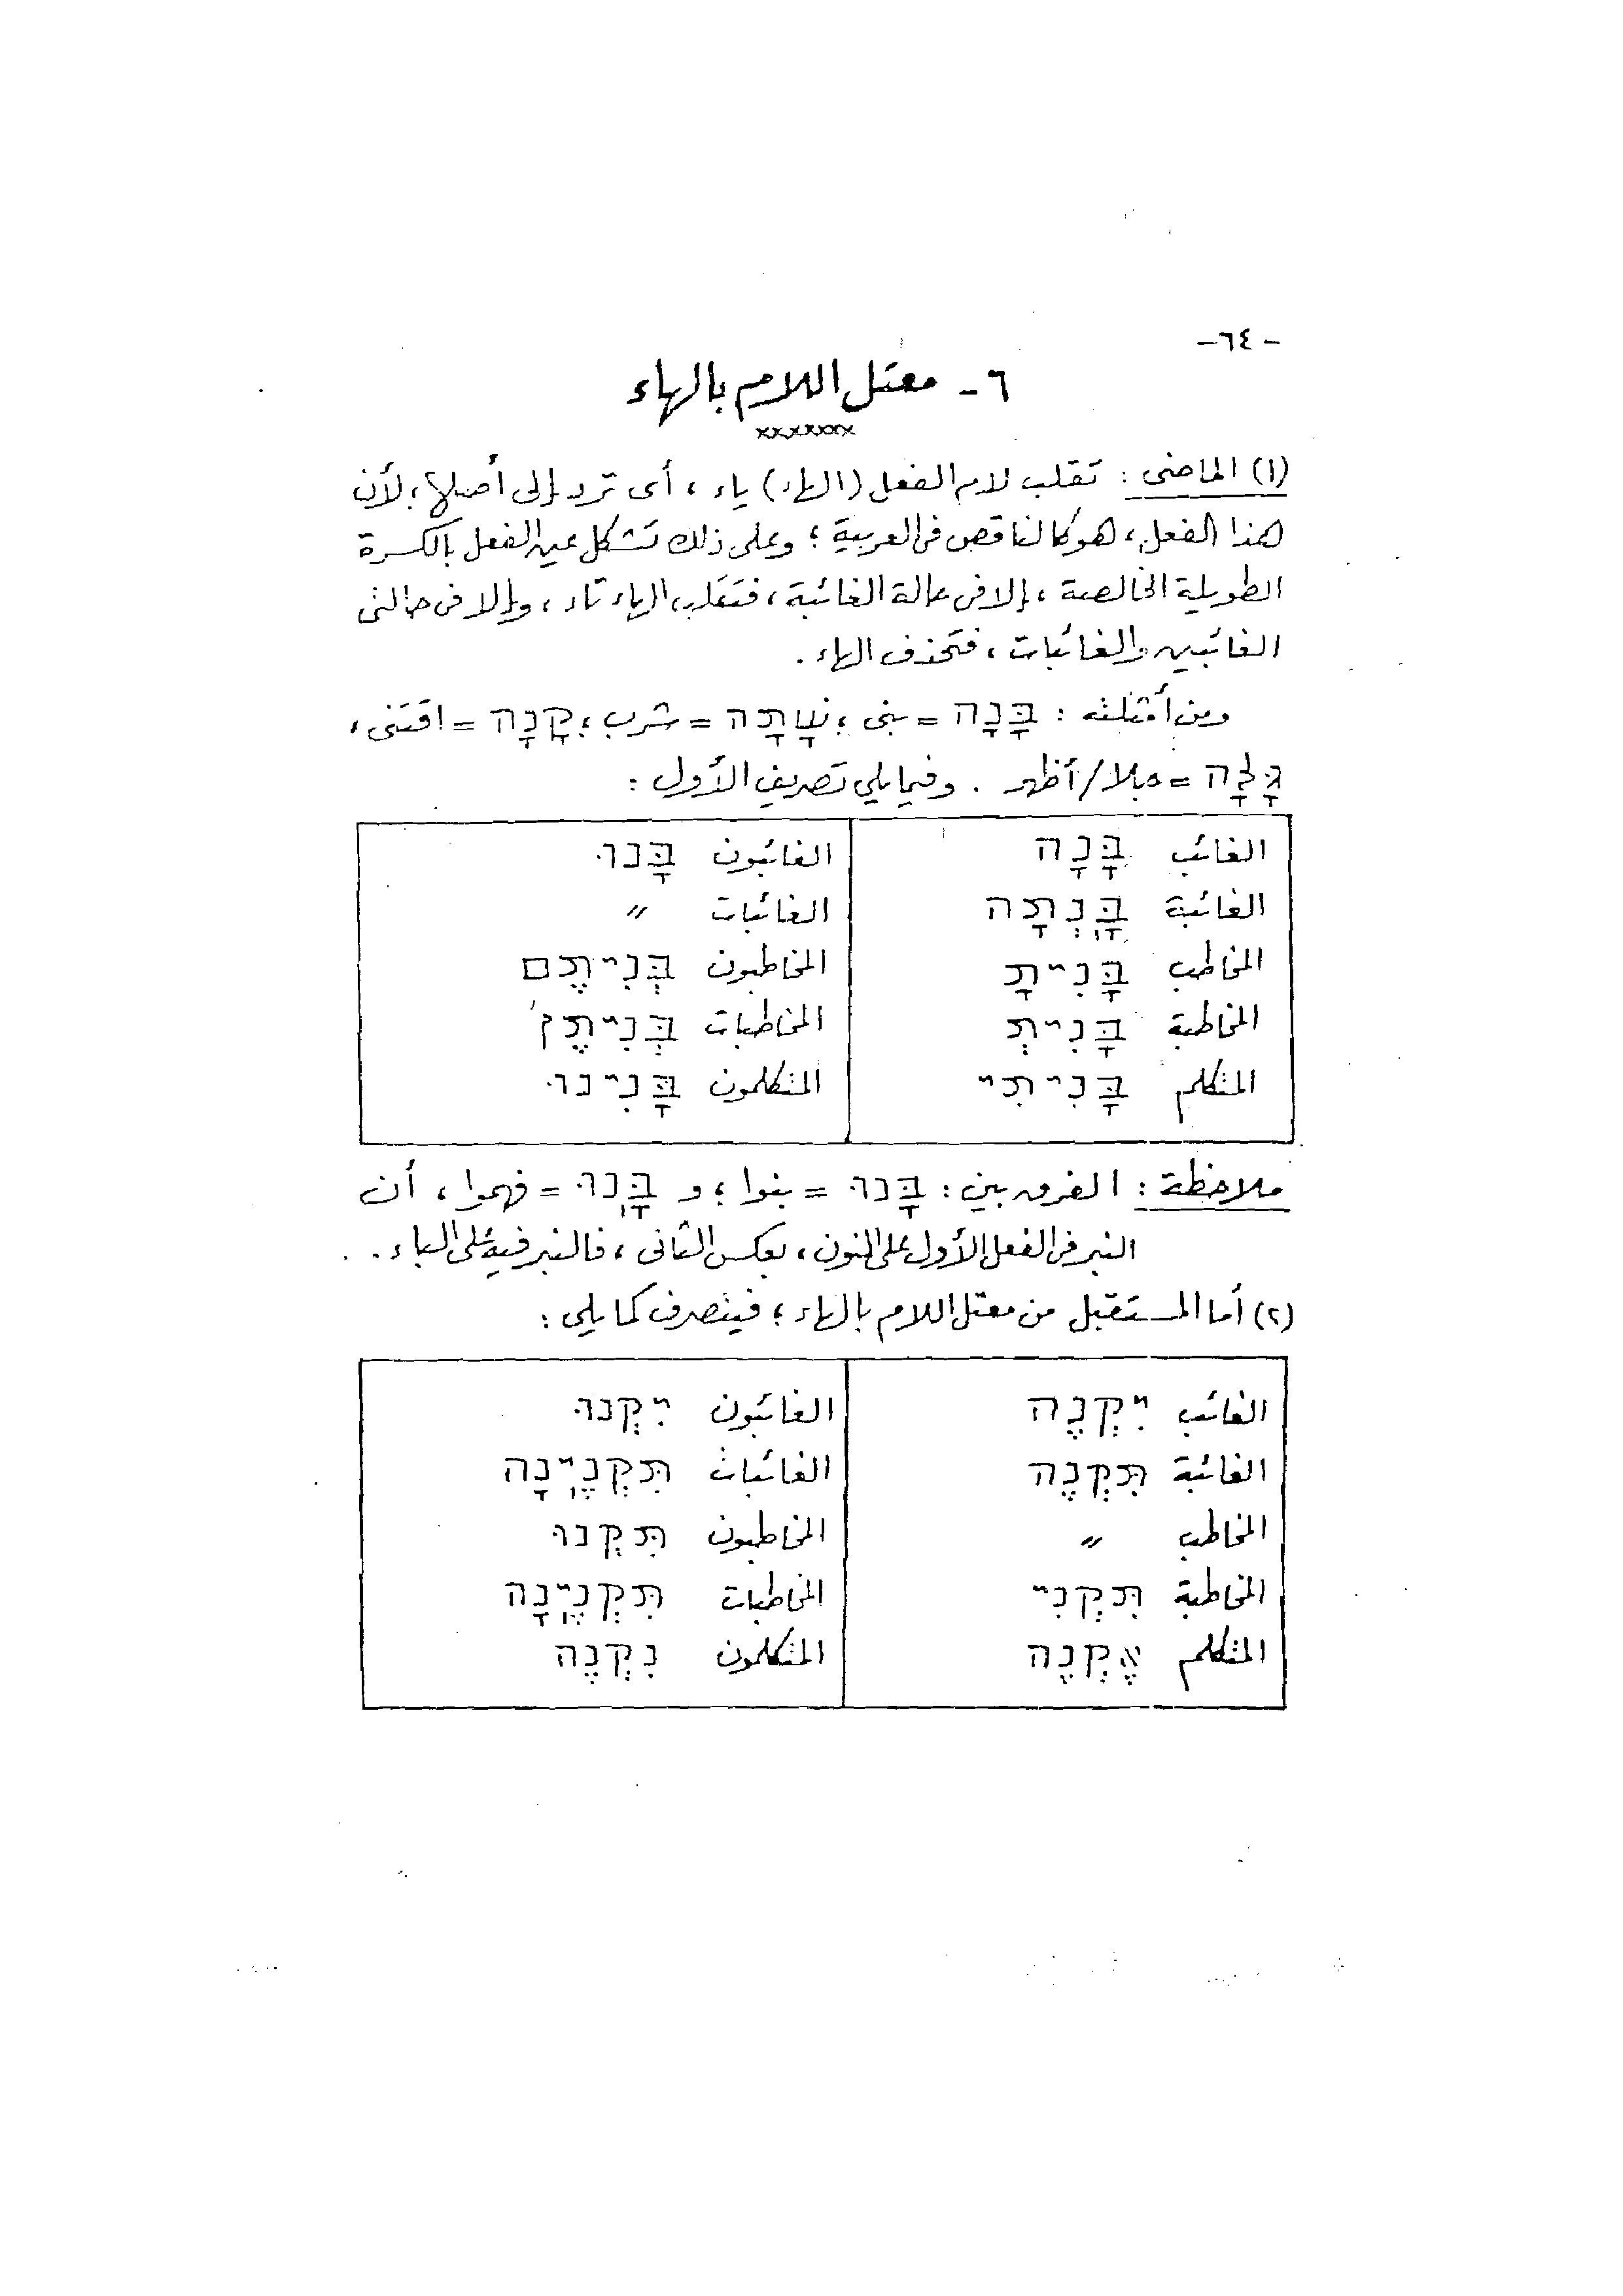 -٦٤-
٦- معتل اللام بالهاء
×××××××
(١) الماضى : تقلب لام الفعل (الهاء) ياء ، أى ترد إلى أصلها ؛ لأن
هذا الفعل ، هو كالناقص فى العربية ؛ وعلى ذلك تشكل عين الفعل بالكسرة
الطويلة الخالصة ، إلا فى حالة الغائبة ، فتقلب الهاء تاء ، وإلا فى حالتى
الغائبين والغائبات ، فتحذف الهاء .
ومن أمثلته : בָּנָה = بنى ؛ שָׁתָה = شرب ؛ קָנָה = اقتنى ،
גָּלָה = جلا / أظهر . وفيما يلى تصريف الأول :
الغائب בָּנָה الغائبون בָּנוּ
الغائبة בָּֽנְתָה الغائبات 〃
المخاطب בָּנִיתָ المخاطبون בְּנִיתֶם
المخاطبة בָּנִיתְ المخاطبات בְּנִיתֶן
المتكلم בָּנִיתִי المتكلمون בָּנִינוּ
ملاحظة : الفرق بين : בָּנוּ = بنوا ؛ و בָּֽנוּ = فهموا ، أن
النبر فى الفعل الأول على النون ، بعكس الثانى ، فالنبر فيه على الباء .
(٢) أما المستقبل من معتل اللام بالهاء ؛ فيتصرف كما يلى :
الغائب יִקְנֶה الغائبون יִקְנוּ
الغائبة תִּקְנֶה الغائبات תִּקְנֶֽינָה
المخاطب 〃 المخاطبون תִּקְנוּ
المخاطبة תִּקְנִי المخاطبات תִּקְנֶֽינָה
المتكلم אֶקְנֶה المتكلمون נִקְנֶה